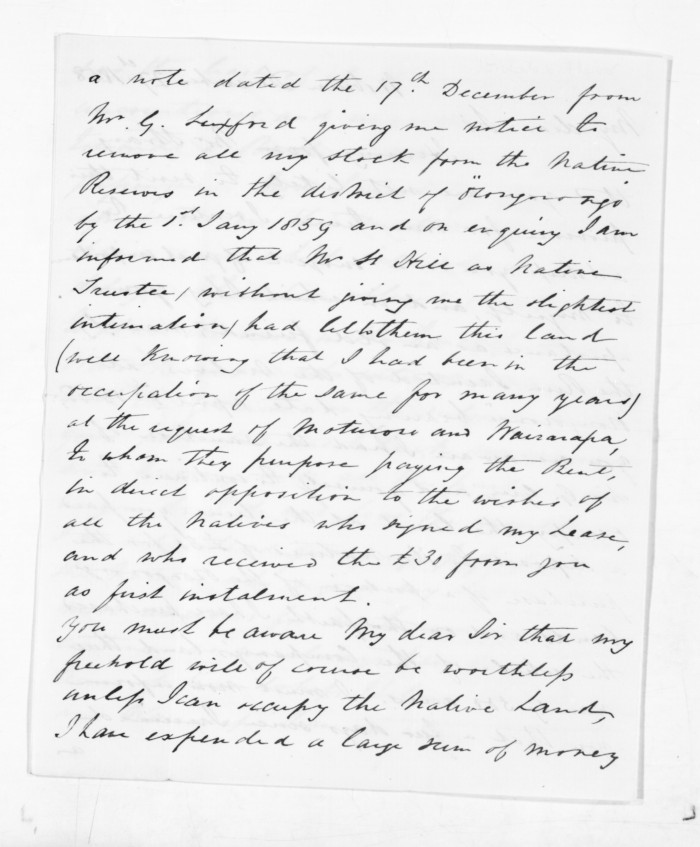 a note dated the 17th. December from
Mr. G. Luxford giving me notice to
remove all my stock from the Native
Reserves in the district of Orongorongo
by the 1st Jany 1859 and on enquiry I am
informed that Mr St Hill as Native
Trustee / without giving me the slightest
intimation / had let to them this land
(well knowing that I had been in the
occupation of the same for many years)
at the request of Moturoa and Wairarapa,
to whom they purpose paying the Rent,
in direct opposition to the wishes of
all the Natives who signed my Lease,
and who received the £30 from you
as first instalment.
You must be aware My dear Sir that my
freehold will of course be worthless
unless I can occupy the Native Land,
I have expended a large sum of money